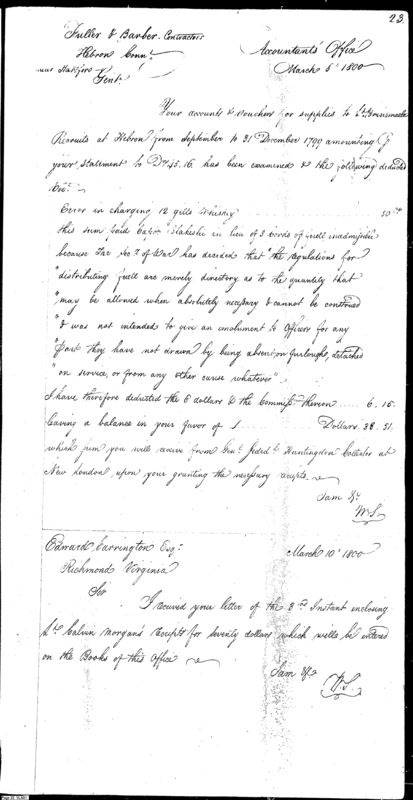 23.
Fuller & Barber Contractors
Hebron Connt.
near Hartford
Gent.
Accountants Office
March 5th 1800
Your accounts & vouchers for supplies to Lt.
Recruits at Hebron from september to 31 December 1799 amounting
your statement to D 45.16 has been examined & the following deducted
Viz.
Error in charging 12 gills Whiskey
this sum paid Capt. Blakeslie in lieu of 3 Cords of fuel inadmissible
because The Secy. of War has decided that "the regulations for
"distributing fuel are merely directory as to the quantity that
"may be allowed when absolutely necessary & cannot be construed
"& was not intended to give an emolument to Officers for any
"part they have not drawn by being absent on furlough, detached
"on service, or from any other cause whatever"
I have therefore deducted the 6 dollars & the Commissn. thereon 6.15
leaving a balance in your favor of Dollars 38.51
which sum you will receive from Genl. Jedeh. Huntingdon Collector at
New London, upon your granting the necessary receipts.
I am &c.
W.S.
Edward Carrington Esqr.
Richmond Virginia
March 10th 1800
Sir
I received your letter of the 3rd Instant enclosing
Lt. Calvin Morgan's receipt for seventy dollars which will be entered
on the Books of this Office
I am &c
W.S.